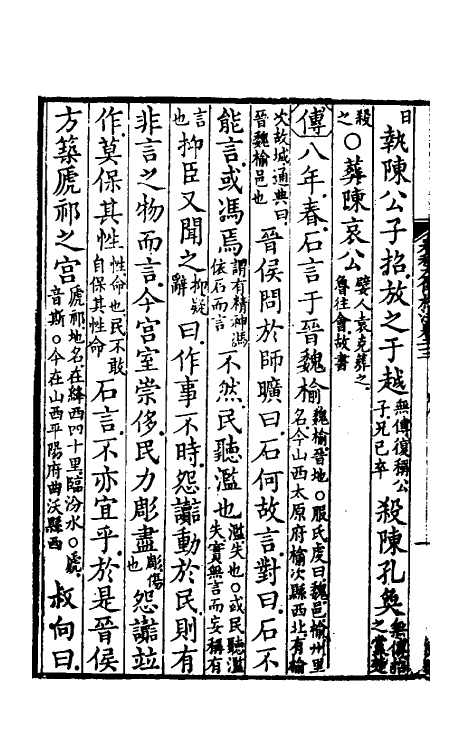 曰執陳公子招放之于越無傳復稱公子兄已卒殺陳孔奐無傳招之黨楚
殺之○葬陳哀公嬖人袁克葬之魯往會故書
傳八年春石言于晉魏榆魏榆晉地○服氏虔曰魏邑榆州里名今山西太原府榆次縣西北有榆
次故城通典曰晉魏榆邑也晉侯問於師曠曰石何故言對曰石不
能言或馮焉謂有精神馮依石而言不然民聽濫也濫失也○或民聽濫失實無言而妄稱有
言也抑臣又聞之抑疑辭曰作事不時怨讟動於民則有
非言之物而言今宮室崇侈民力彫盡彫傷也怨讟並
作莫保其性性命也民不敢自保其性命石言不亦宜乎於是晉侯
方築虒祁之宮虒祁地名在絳西四十里臨汾水○虒音斯○今在山西平陽府曲沃縣西叔向曰